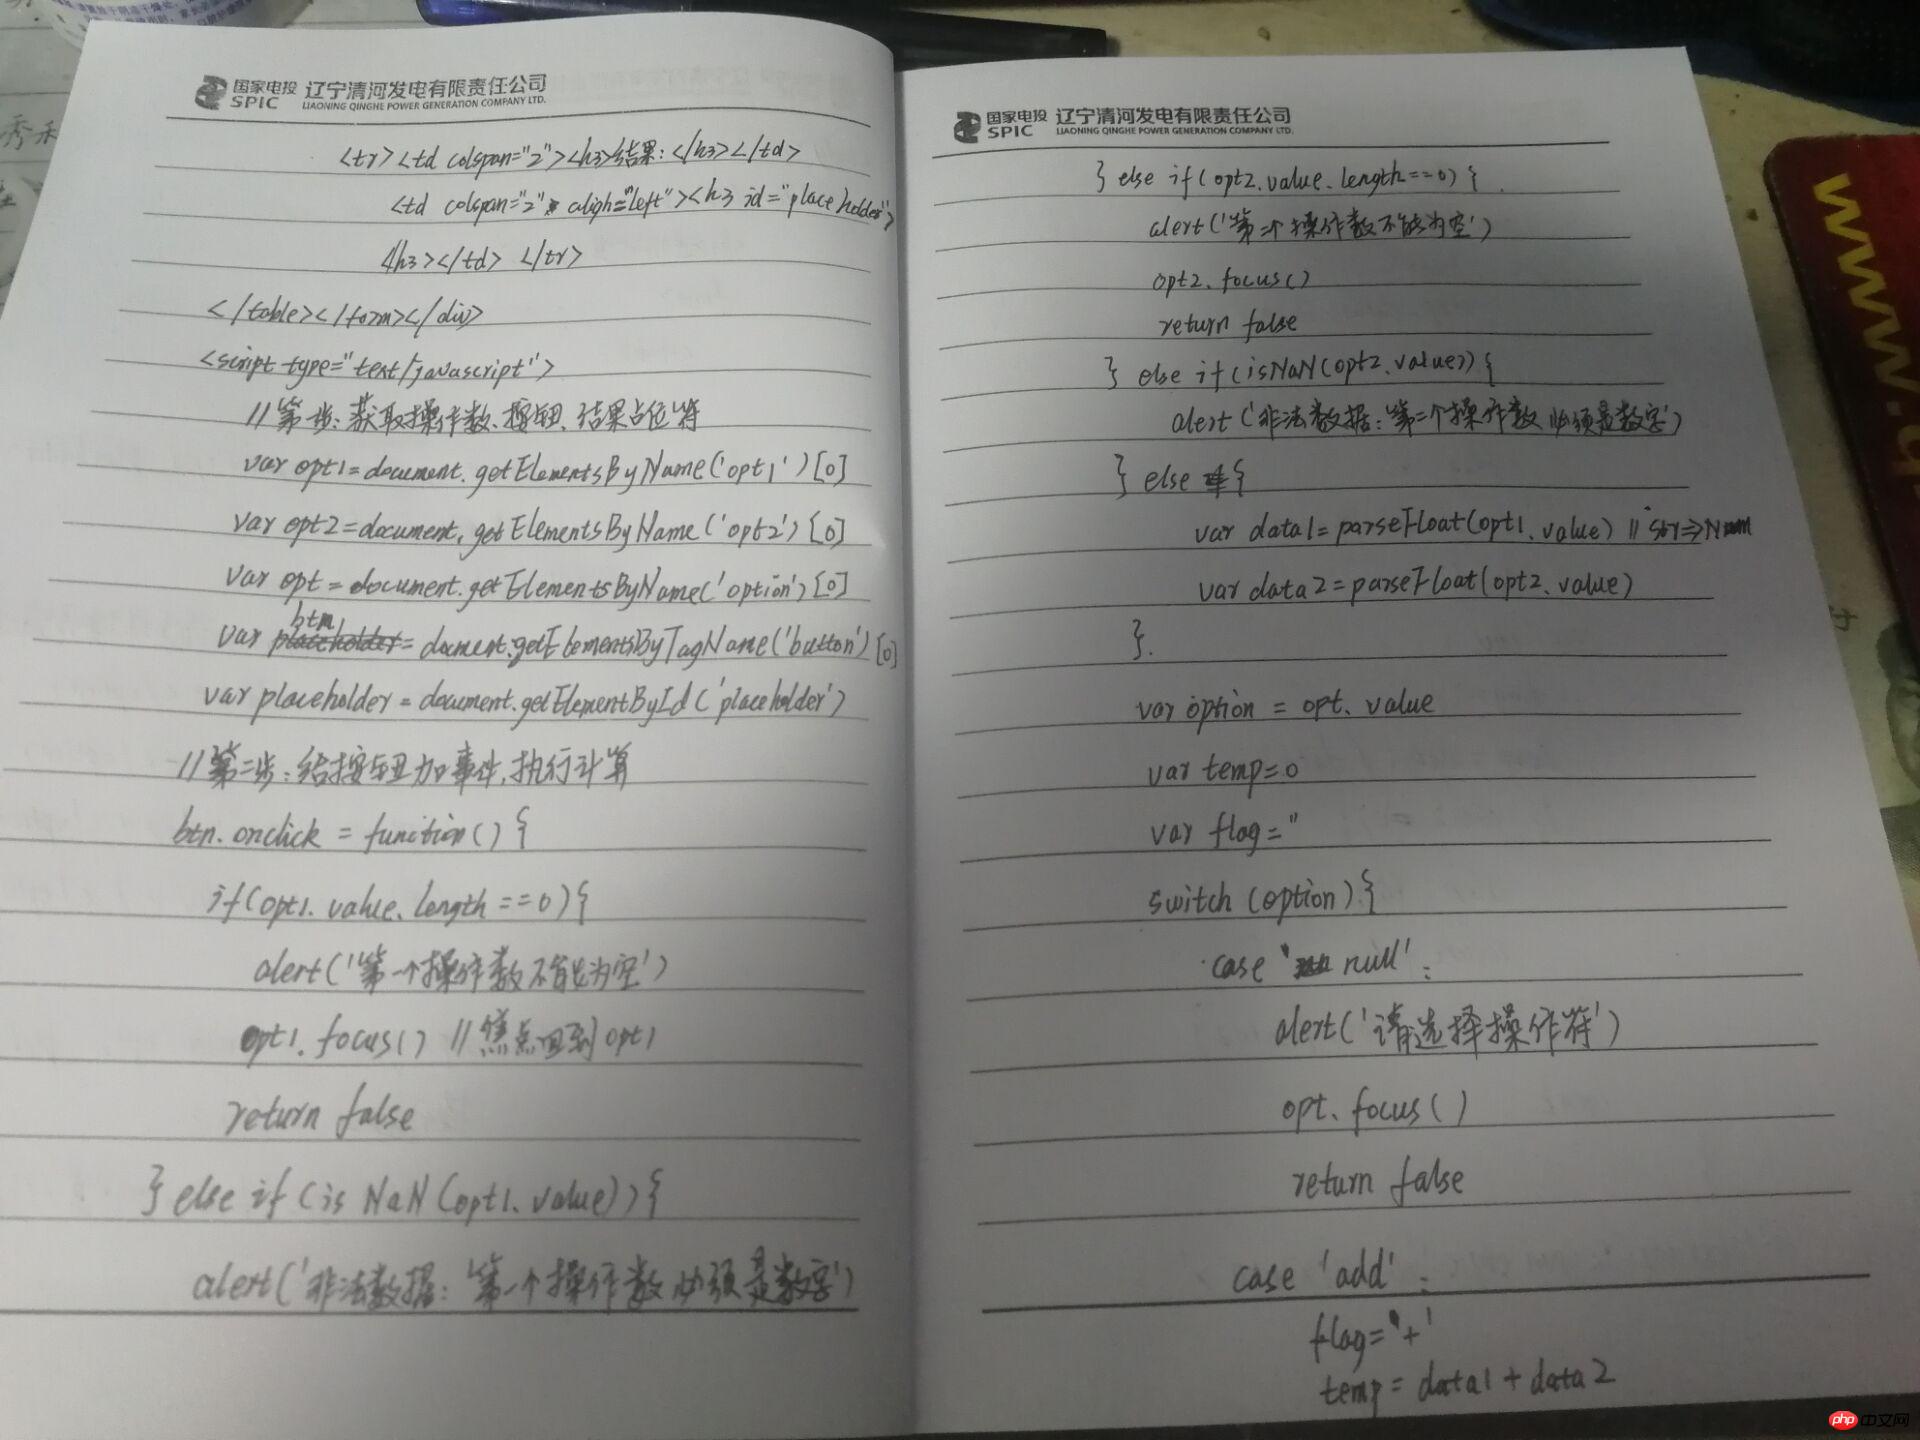 国家电投 SPIC 辽宁清河发电有限责任公司
LIAONING QINGHE POWER GENERATION COMPANY LTD.
<tr><td colspan="2"><h3>结果:</h3></td>
<td colspan="2" aligh="left"><h3 id="placeholder">
</h3></td> </tr>
</table></form></div>
<script type="text/javascript">
//第一步:获取操作数、按钮、结果占位符
var opt1=document.getElementsByName('opt1')[0]
var opt2=document.getElementsByName('opt2')[0]
var opt=document.getElementsByName('option')[0]
var btn=document.getElementsByTagName('button')[0]
var placeholder=document.getElementById('placeholder')
//第二步:给按钮加事件,执行计算
btn.onclick = function() {
if(opt1.value.length==0){
alert('第一个操作数不能为空')
opt1.focus() //焦点回到opt1
return false
} else if(isNaN(opt1.value)){
alert('非法数据:第一个操作数必须是数字')
国家电投 SPIC 辽宁清河发电有限责任公司
LIAONING QINGHE POWER GENERATION COMPANY LTD.
} else if(opt2.value.length==0){
alert('第二个操作数不能为空')
opt2.focus()
return false
} else if(isNaN(opt2.value)){
alert('非法数据:第二个操作数必须是数字')
} else {
var data1=parseFloat(opt1.value) //str=>Num
var data2=parseFloat(opt2.value)
}
var option = opt.value
var temp=0
var flag=''
switch(option){
case 'null':
alert('请选择操作符')
opt.focus()
return false
case 'add':
flag='+'
temp=data1+data2
www.
php 中文网